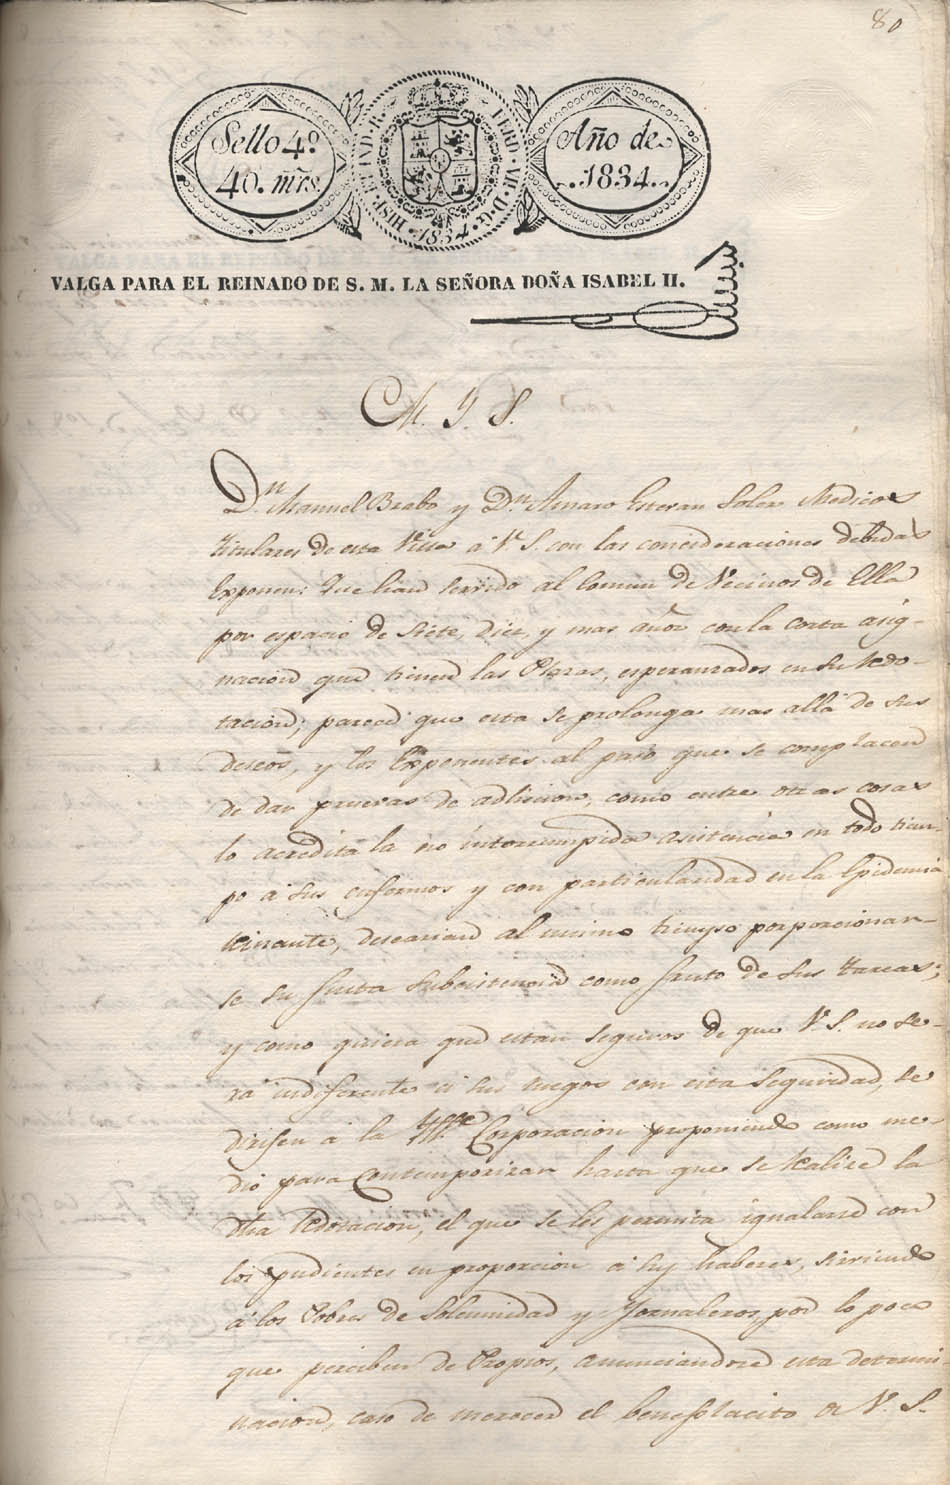 80
Sello 4º
40. mrs.
HISP. ET IND. R. FERD. VII. D. G.
1834.
Año de
1834.
VALGA PARA EL REINADO DE S. M. LA SEÑORA DOÑA ISABEL II.
M. Y. S.
Dn. Manuel Brabo y Dn. Amaro Estevan Soler Medicos
titulares de esta Villa á V. S. con las consideraciones debidas
Exponen: Que han servido al Comun de Vecinos de Ella
por espacio de siete, diez, y mas años con la corta asig-
nacion que tienen las Plazas, esperanzados en su redo-
tacion; parece que esta se prolonga mas allá de sus
deseos, y los Exponentes al paso que se complacen
de dar pruevas de adhesion, como entre otras cosas
lo acredita la no interrumpida asistencia en todo tiem-
po á sus enfermos y con particularidad en la Epidemia
reinante, desearian al mismo tiempo porporcionar-
se su justa subsistencia como fruto de sus tareas;
y como quiera que estan seguros de que V. S. no se-
rá indiferente á sus ruegos con esta seguridad, se
dirijen á la Ylle. Corporacion proponiendo como me-
dio para contemporizar hasta que se realize la
dha redotacion, el que se les permita igualarse con
los pudientes en proporcion á sus haberes, sirviendo
á los Pobres de Solemnidad y Jornaleros, por lo poco
que perciben de Propios, anunciandose esta determi
nacion, caso de merecer el beneplacito de V. S.